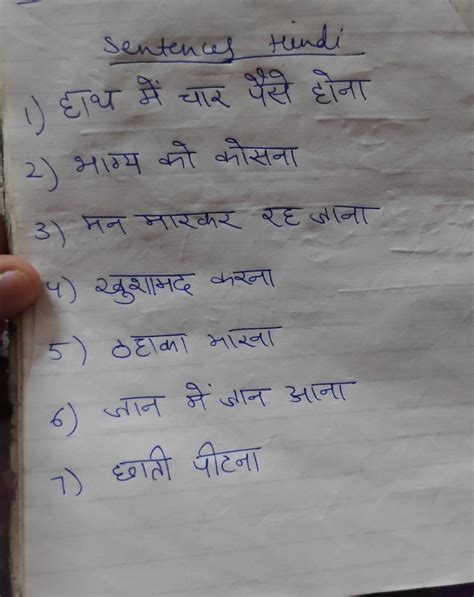 Sentences Hindi
1) हाथ में चार पैसे होना
2) भाग्य को कोसना
3) मन मारकर रह जाना
4) खुशामद करना
5) ठहाका मारना
6) जान में जान आना
7) छाती पीटना